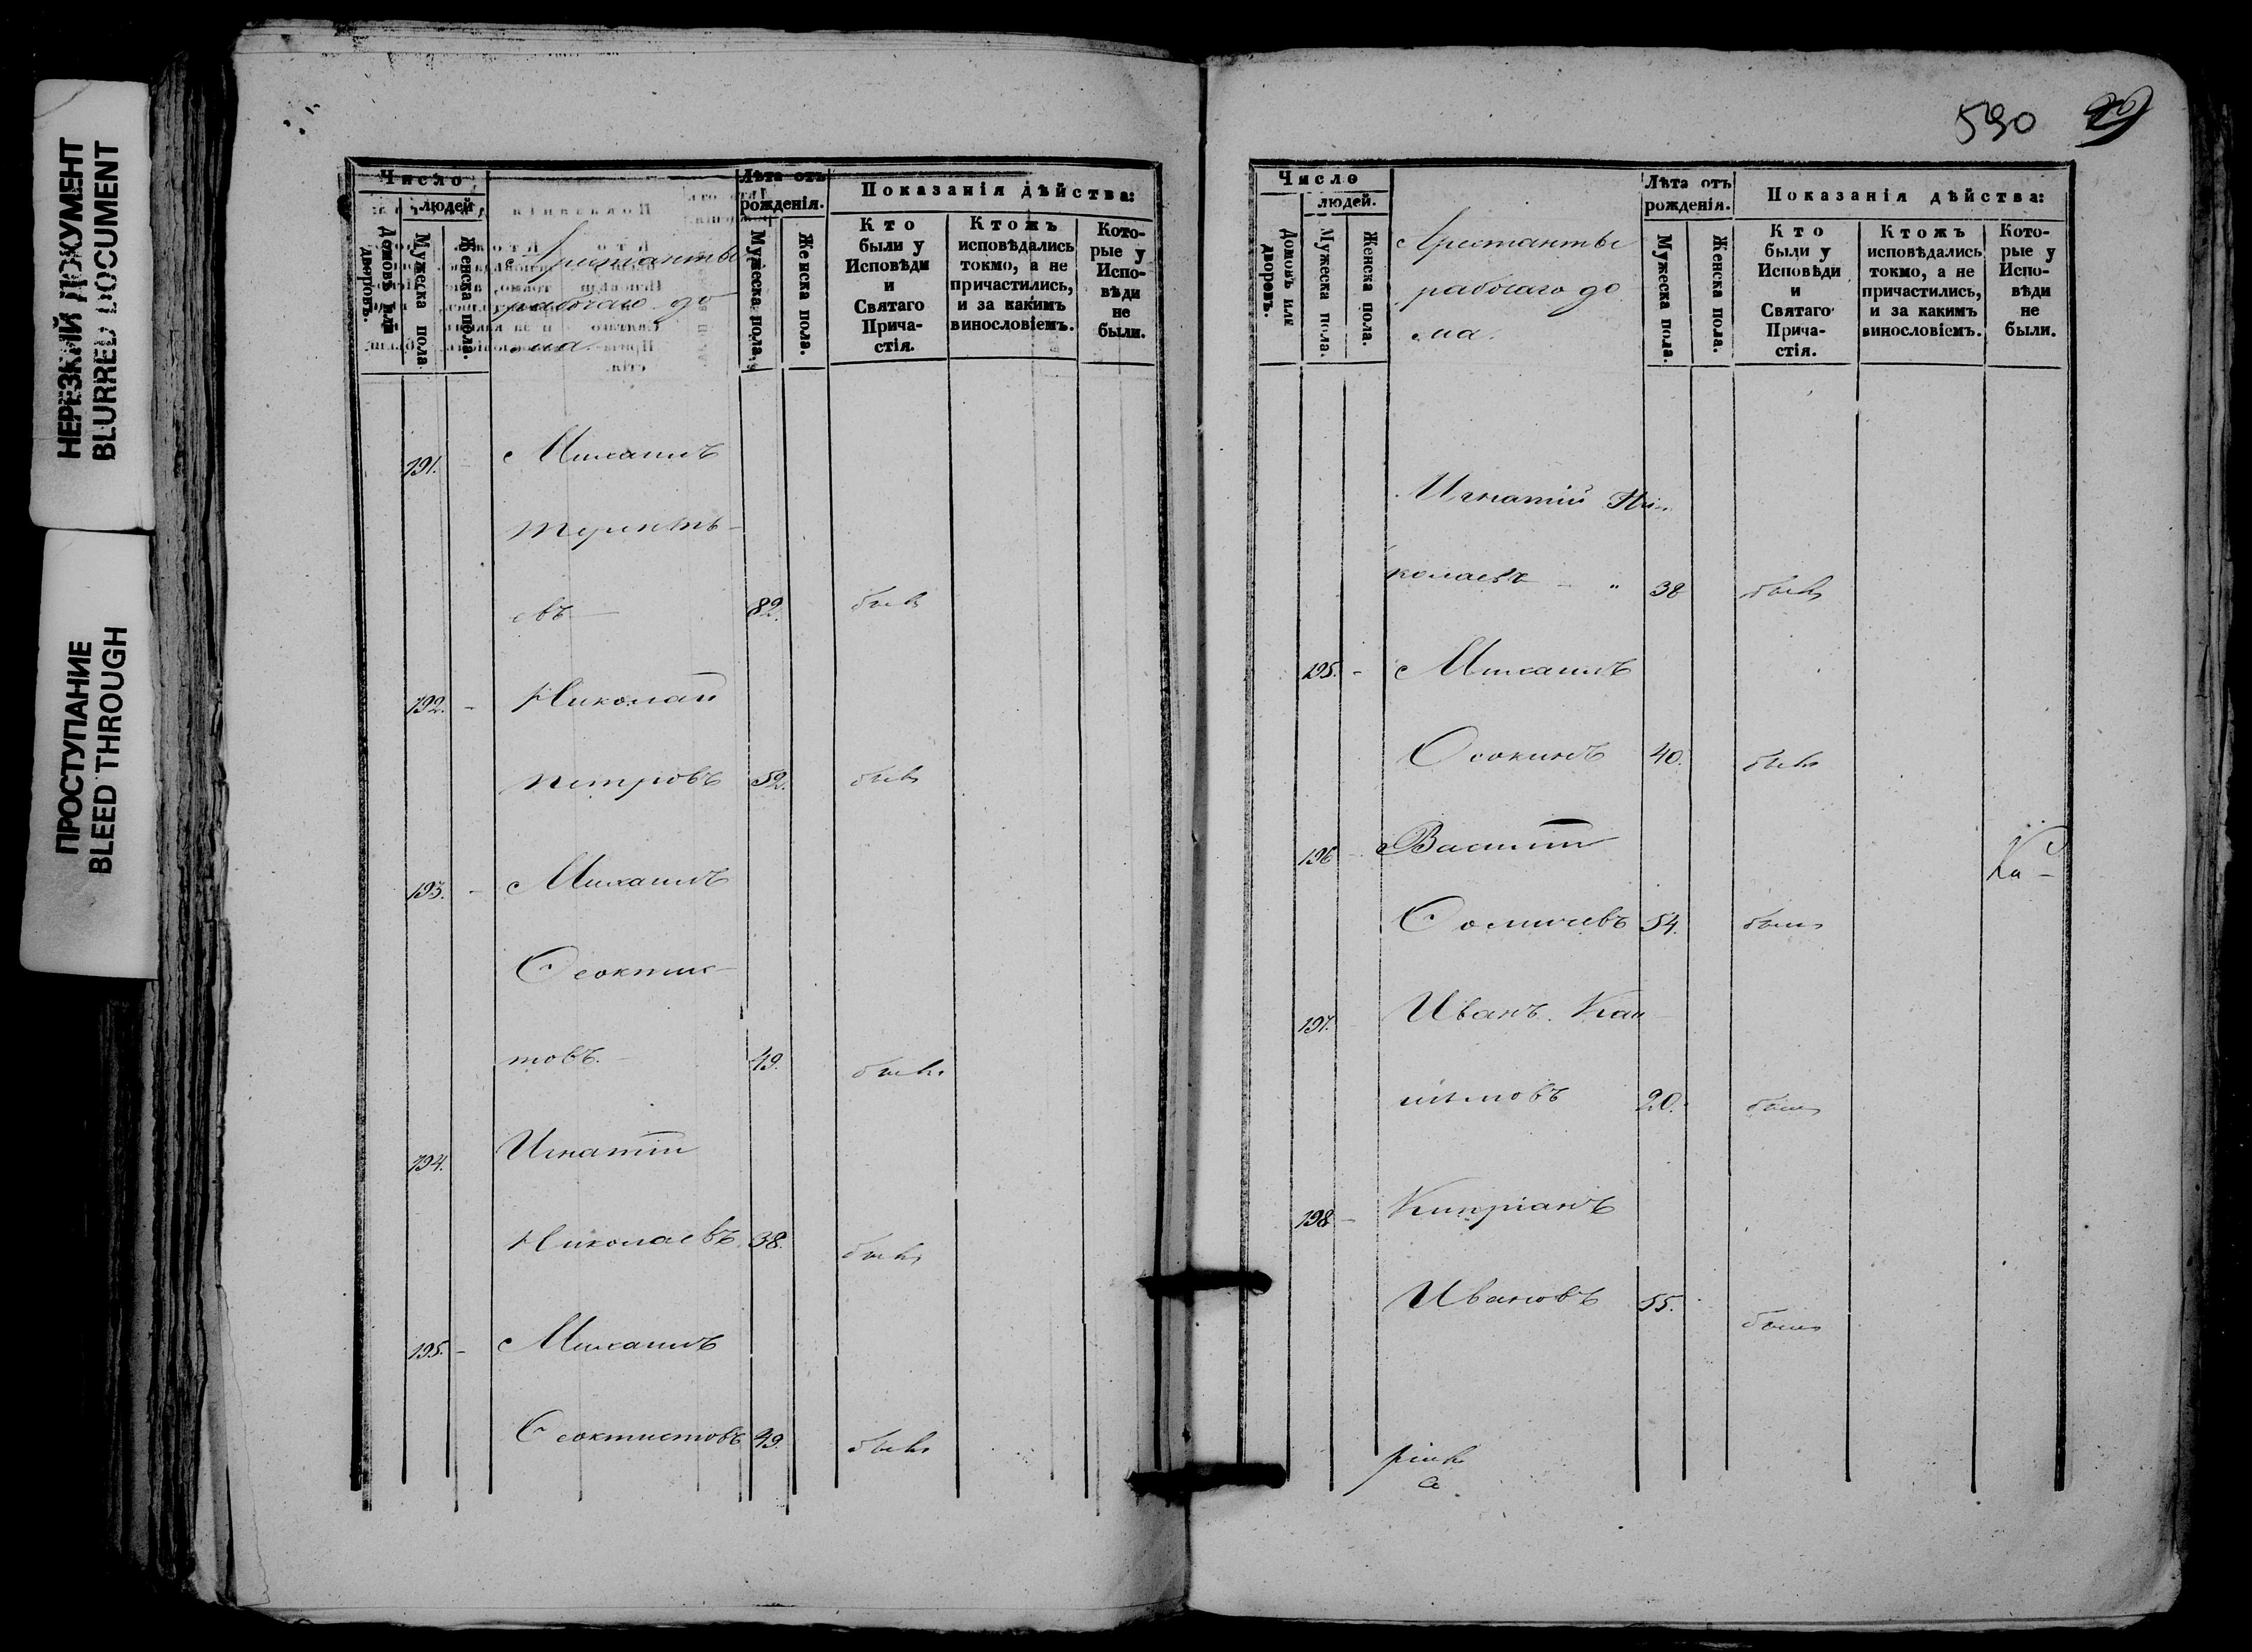 НЕРЕЗКИЙ ДОКУМЕНТ
BLURRED DOCUMENT
ПРОСТУПАНИЕ
BLEED THROUGH
Число
людей
Домовъ или дворовъ.
Мужеска пола
Женска пола.
Арестанты
рабочаго до
ма.
Лѣта отъ
рожденія.
Мужеска пола.
Женска пола.
Показанія дѣйства:
Кто
были у
Исповѣди
и
Святаго
Прича-
стія.
Ктожъ
исповѣдались
токмо, а не
причастились,
и за какимъ
винословіемъ.
Кото-
рые у
Испо-
вѣди
не
были.
191. Михаилъ
Терентъ-
евъ 82. былъ
192. - Николай
Петровъ 52. былъ
193. - Михаилъ
Ѳеоктис-
товъ. 49. былъ
194. Игнатій
Николаевъ 38. былъ
195. - Михаилъ
Ѳеоктистовъ 49. былъ
590 29
Число
людей.
Домовъ или дворовъ.
Мужеска пола.
Женска пола.
Арестанты
рабочаго до
ма.
Лѣта отъ
рожденія.
Мужеска пола.
Женска пола.
Показанія дѣйства:
Кто
были у
Исповѣди
и
Святаго
Прича-
стія.
Ктожъ
исповѣдались
токмо, а не
причастились,
и за какимъ
винословіемъ.
Кото-
рые у
Испо-
вѣди
не
были.
Игнатій Ни-
колаевъ - " 38 былъ
195. - Михаилъ
Осокинъ 40. былъ
196 - Василій
Ка-
54. былъ
197. Иванъ
20. былъ
198 - Кипріанъ
Ивановъ 55. былъ